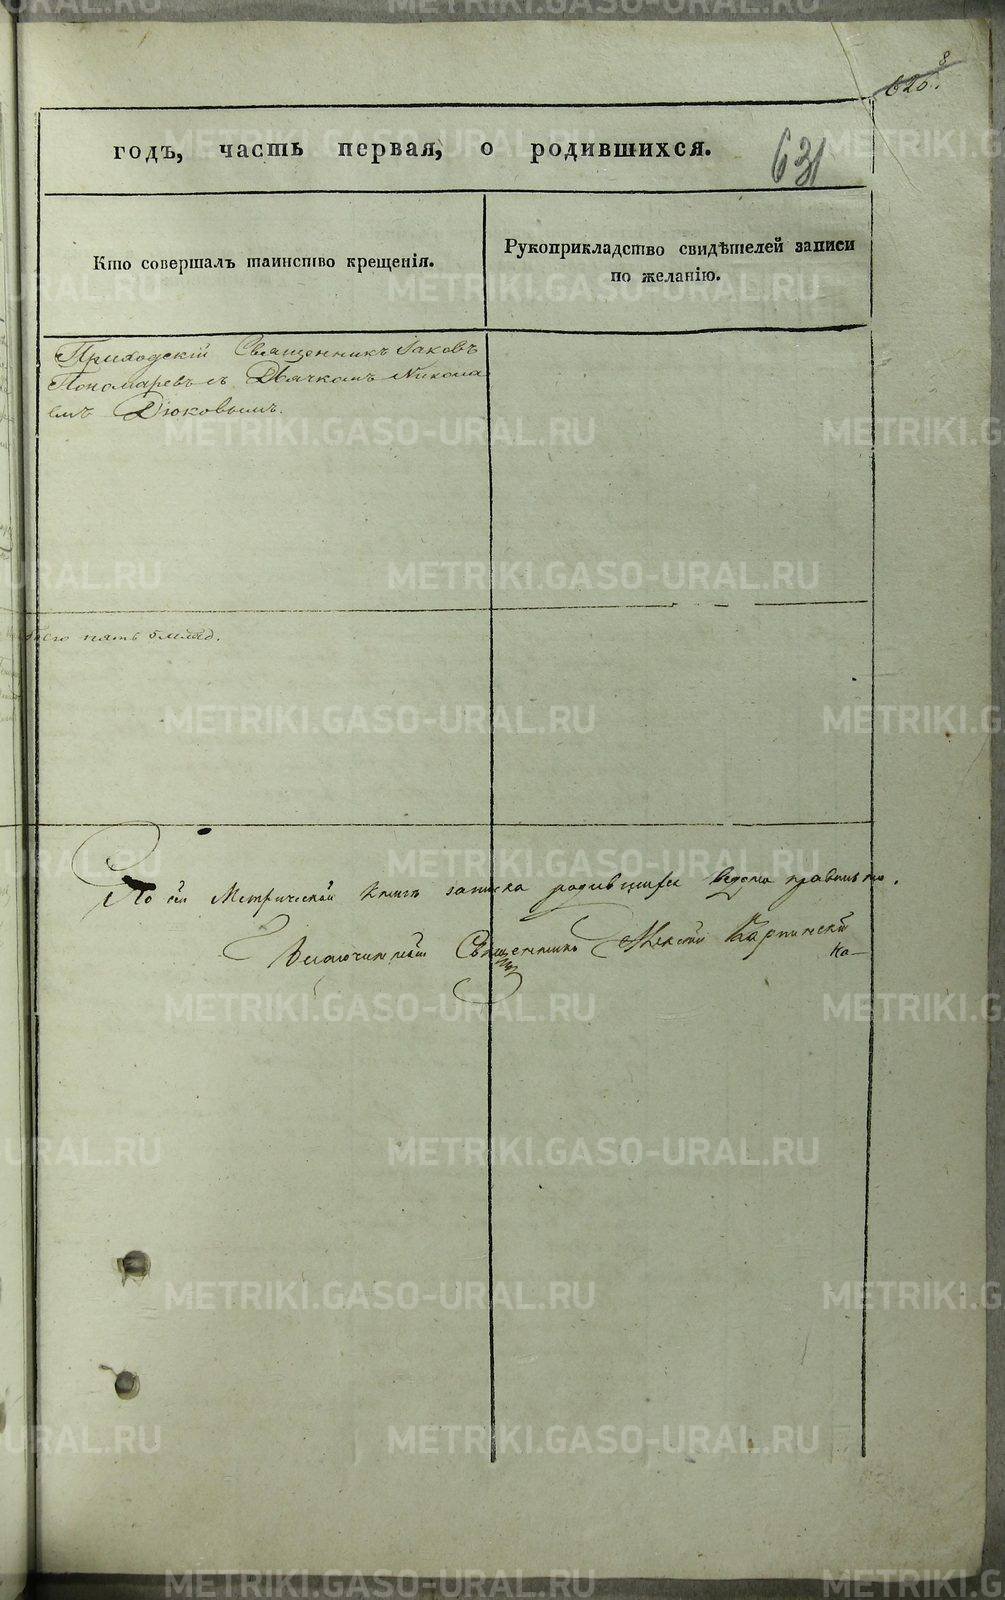 620.
8
годъ, часть первая, о родившихся.
631
Кто совершалъ таинство крещенія.
Рукоприкладство свидѣтелей записи
по желанію.
Приходскій Священникъ Іаковъ
Пономаревъ съ Дьячкомъ Никола
емъ Дюковымъ.
пять
По сей Метрической Книгѣ записка родившихся ведена правильно.
Благочинный Священникъ Алексій Карпинскій
Ка—
METRIKI.GASO-URAL.RU